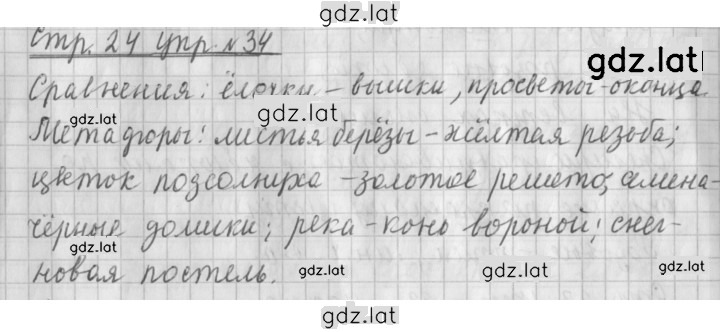 gdz.lat
стр. 24 упр. № 34
gdz.lat
Сравнения: ёлочки – вышки, просветы-оконца.
gdz.lat
Метафоры: листья берёзы – жёлтая резьба;
цветок подсолнуха – золотое решето, семена-
gdz.lat
чёрные домики; река – конь вороной; снег-
gdz.lat
новая постель.
gdz.lat
gdz.lat
gdz.lat
gdz.lat